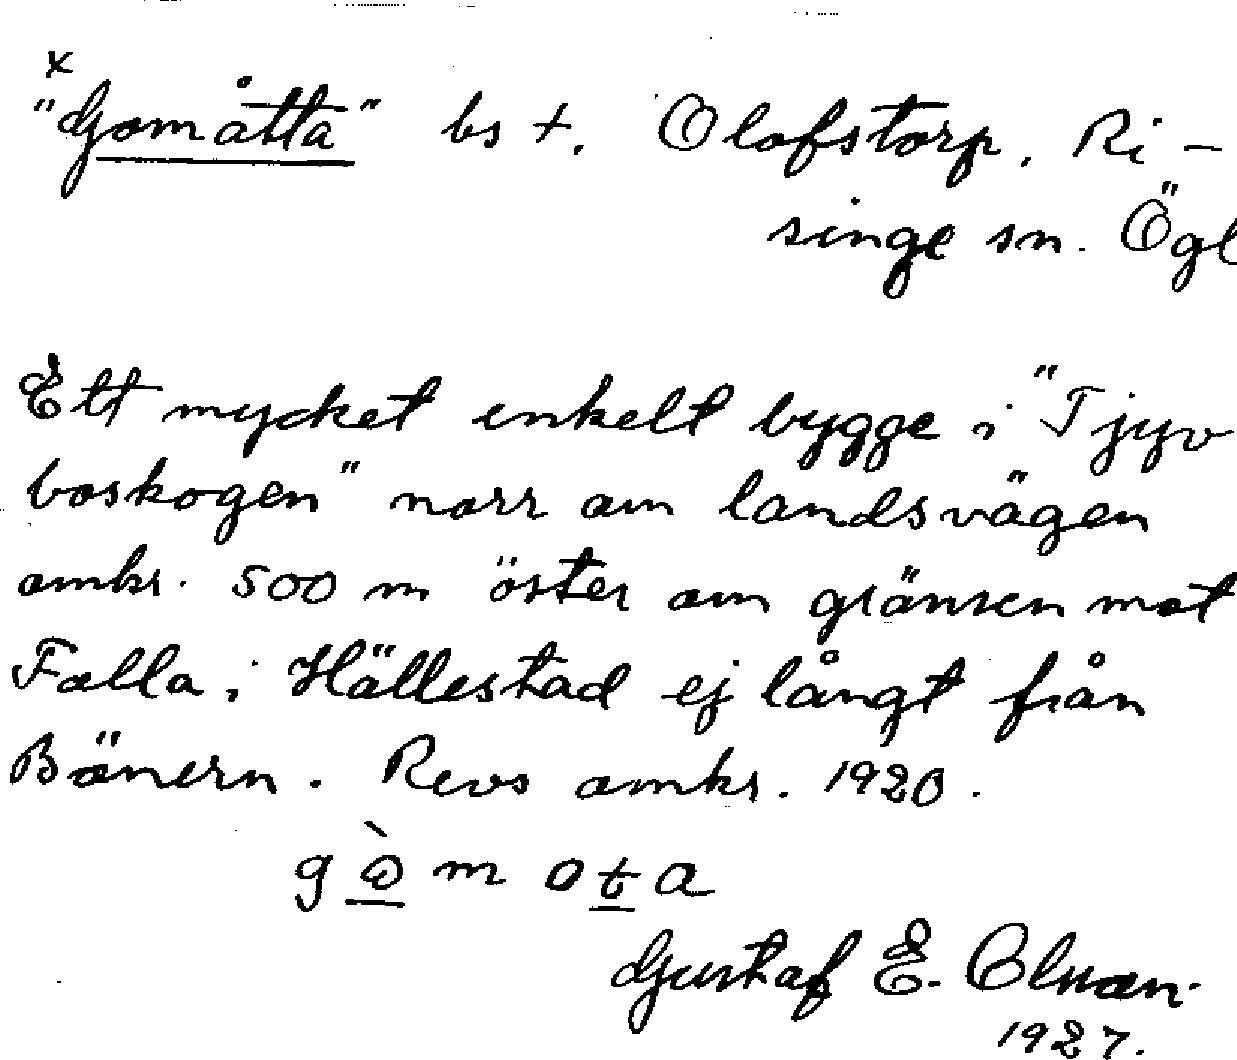 x
"Gomåtta" bs +. Olofstorp, Ri-
singe sn. Ögl
Ett mycket enkelt bygge i "Tjyv
boskogen" norr om landsvägen
omkr. 500 m öster om gränsen mot
Falla i Hällestad ej långt från
Bönern. Revs omkr. 1920.
g ò m o t a
Gustaf E.
1927.